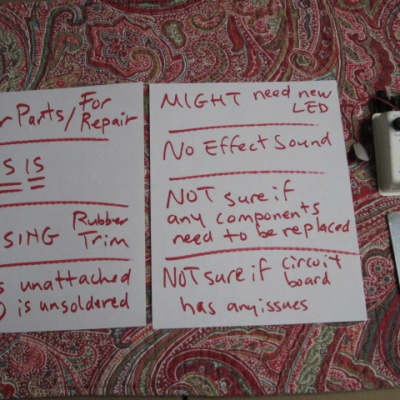 Parts/For
Repair
S IS
Rubber
SING Trim
unattached
is unsoldered
MIGHT need new
LED
No Effect Sound
NOT sure if
any components
need to be replaced
NOT sure if circuit
board
has any issues